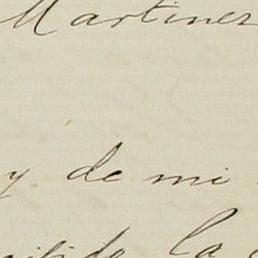 Martinez
y de mi
la